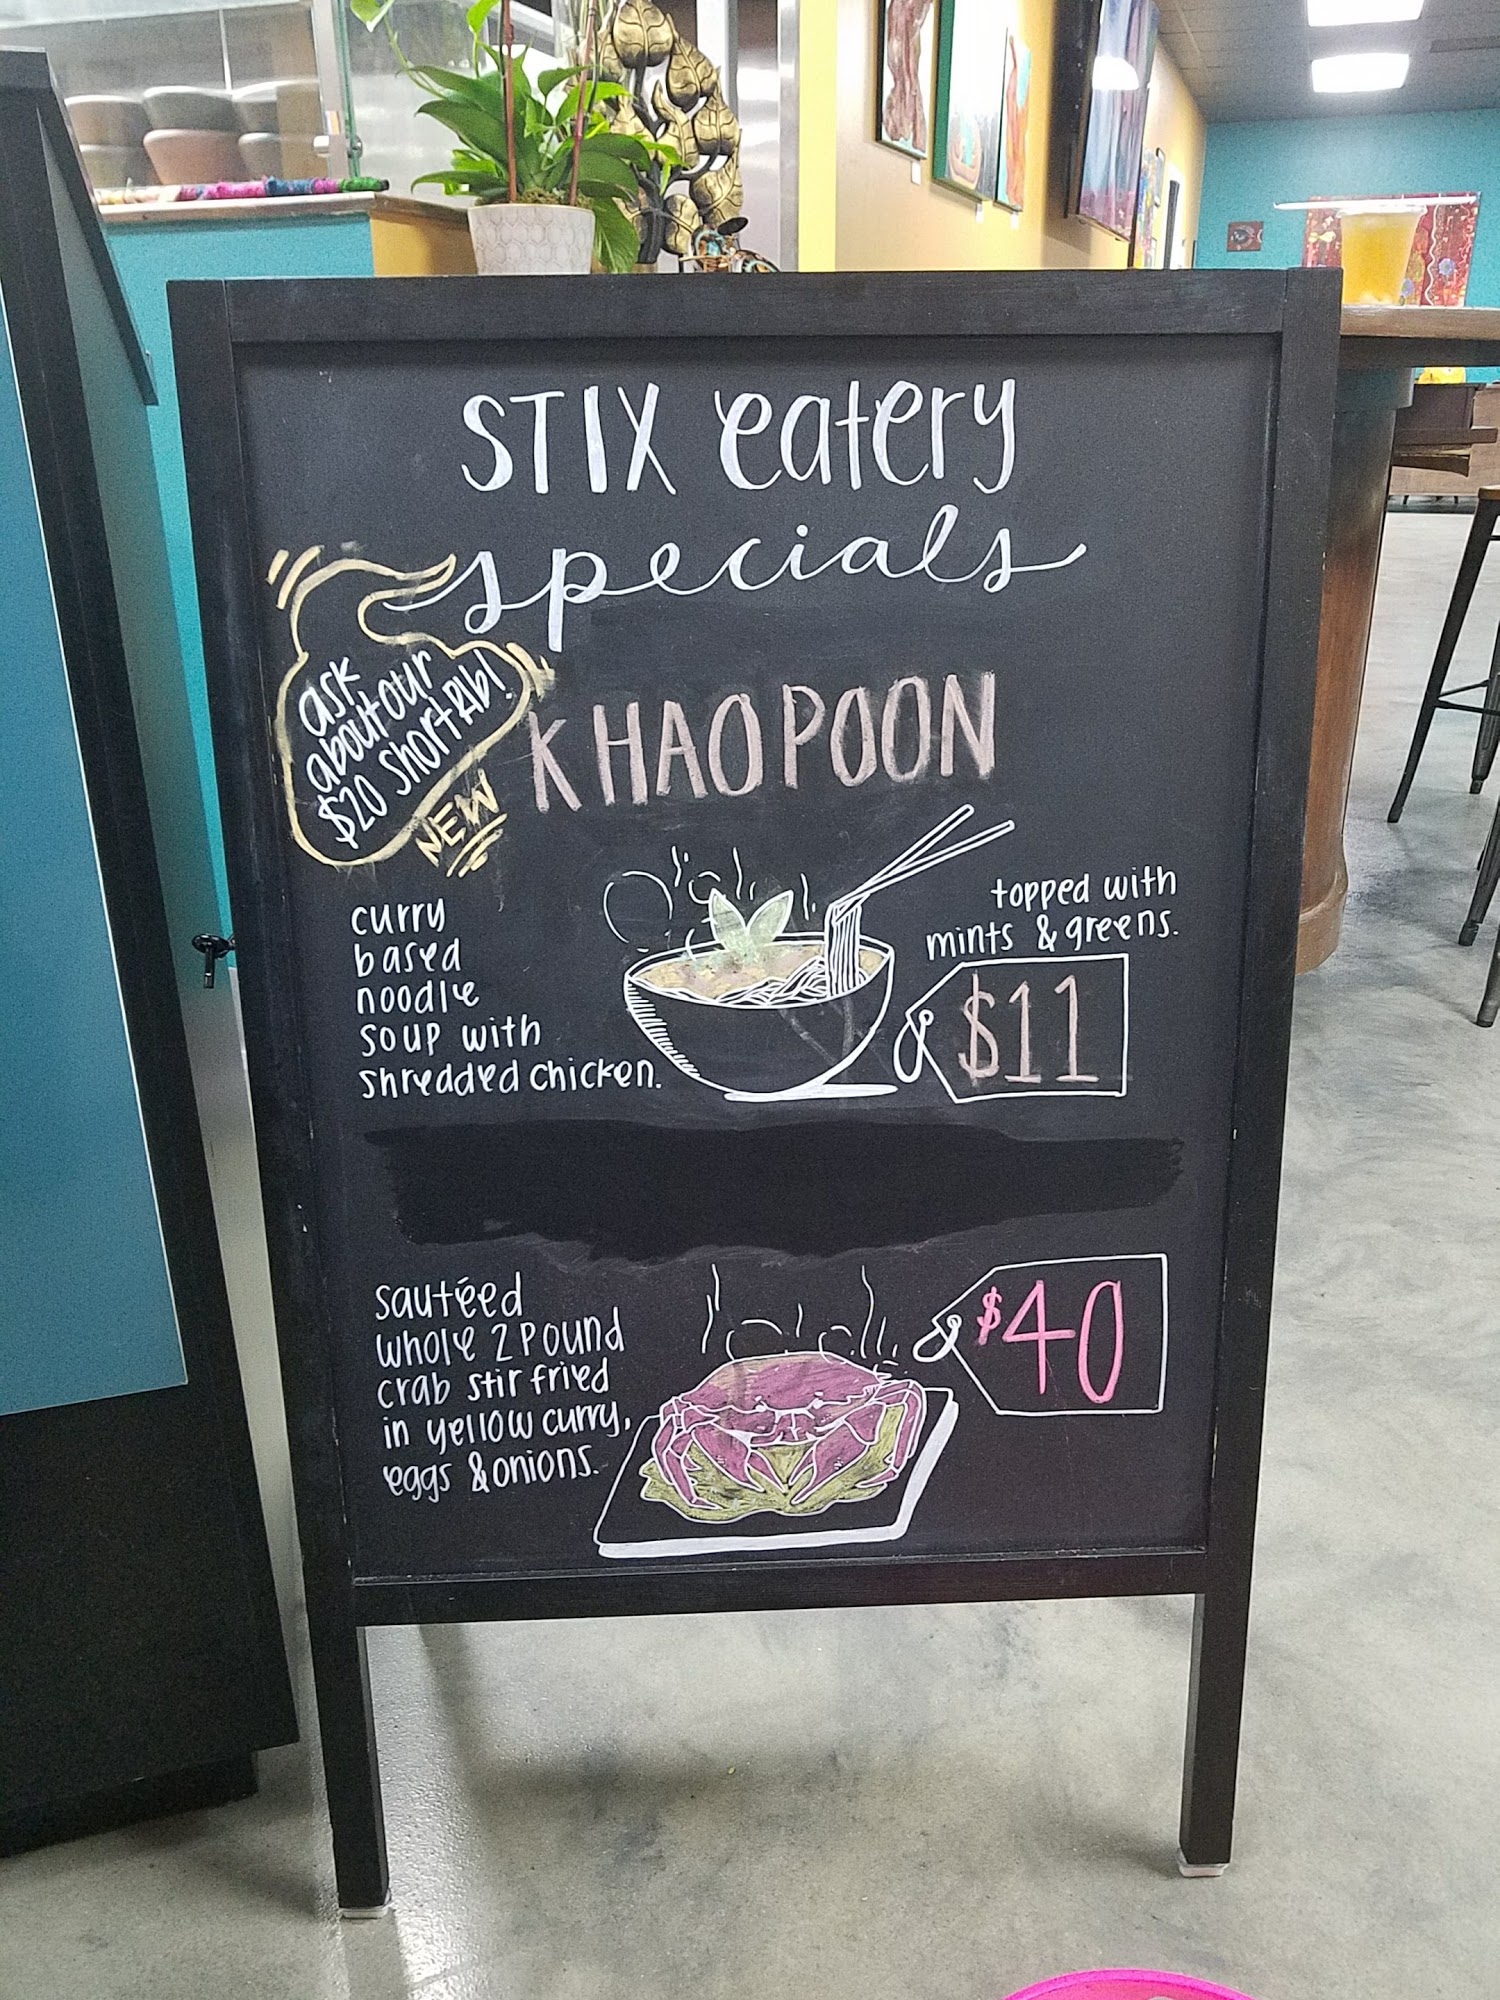 STIX eatery
specials
ask
about our
$20 Short Rib!
NEW
KHAOPOON
curry
based
noodle
soup with
shredded chicken.
topped with
mints & greens.
$11
sautéed
whole 2 pound
crab stir fried
in yellow curry,
eggs & onions.
$40